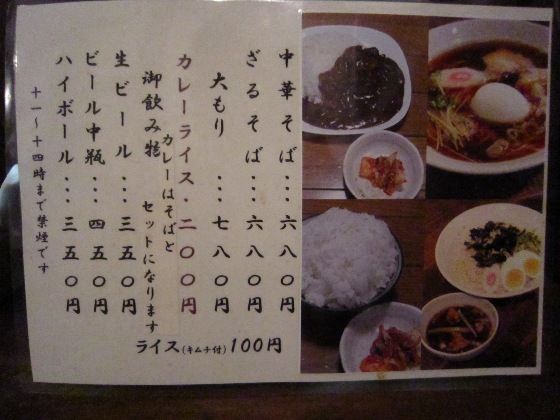 中華そば…六八〇円
ざるそば…六八〇円
大もり…七八〇円
カレーライス・二〇〇円
カレーはそばと
セットになります
御飲み物
生ビール…三五〇円
ビール中瓶…四五〇円
ハイボール…三五〇円
十一〜十四時まで禁煙です
ライス(キムチ付)100円